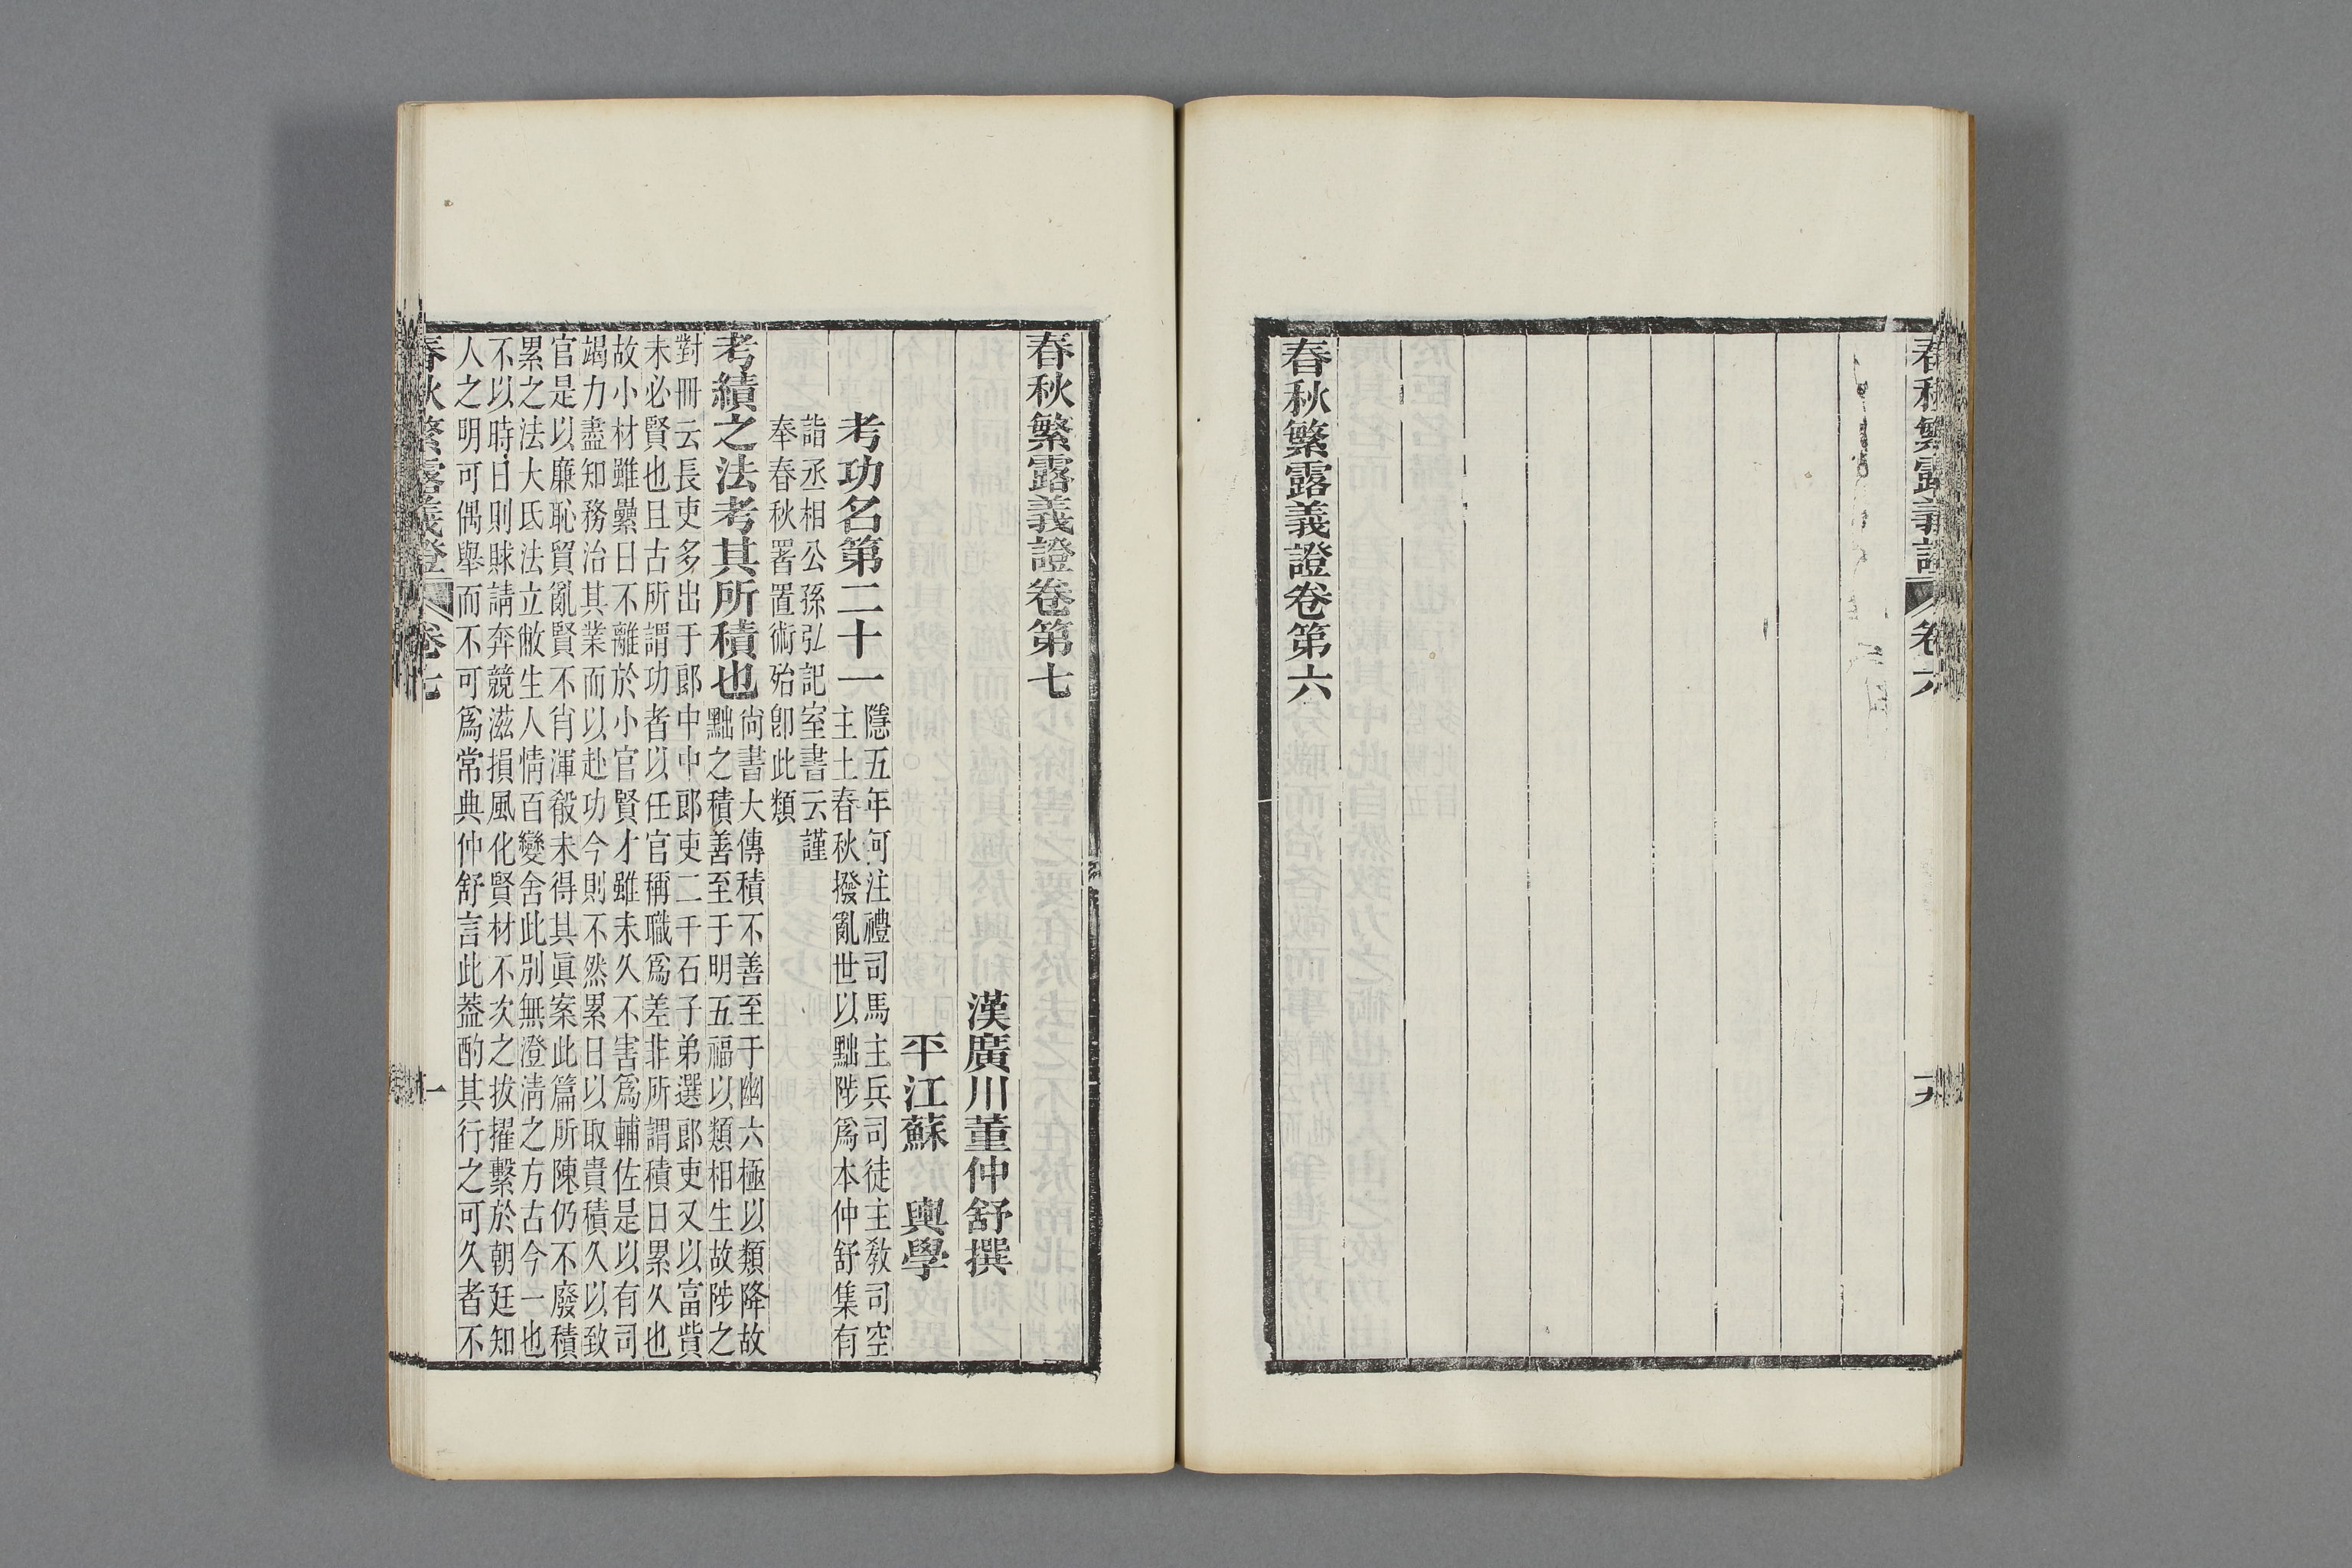 春秋繁露義證
卷六
十九
春秋繁露義證卷第六
春秋繁露義證卷第七
漢廣川董仲舒撰
平江蘇 輿學
考功名第二十一
隱五年何注禮司馬主兵司徒主敎司空
主土春秋撥亂世以黜陟爲本仲舒集有
詣丞相公孫弘記室書云謹
奉春秋署置術殆卽此類
考績之法考其所積也
尙書大傳積不善至于幽六極以類降故
黜之積善至于明五福以類相生故陟之
對冊云長吏多出于郞中中郞吏二千石子弟選郞吏又以富訾
未必賢也且古所謂功者以任官稱職爲差非所謂積日累久也
故小材雖纍日不離於小官賢才雖未久不害爲輔佐是以有司
竭力盡知務治其業而以赴功今則不然累日以取貴積久以致
官是以廉恥貿亂賢不肖渾殽未得其眞案此篇所陳仍不廢積
累之法大氐法立敝生人情百變舍此別無澄淸之方古今一也
不以時日則賕請奔競滋損風化賢材不次之拔擢繫於朝廷知
人之明可偶舉而不可爲常典仲舒言此葢酌其行之可久者不
春秋繁露義證
卷七
一